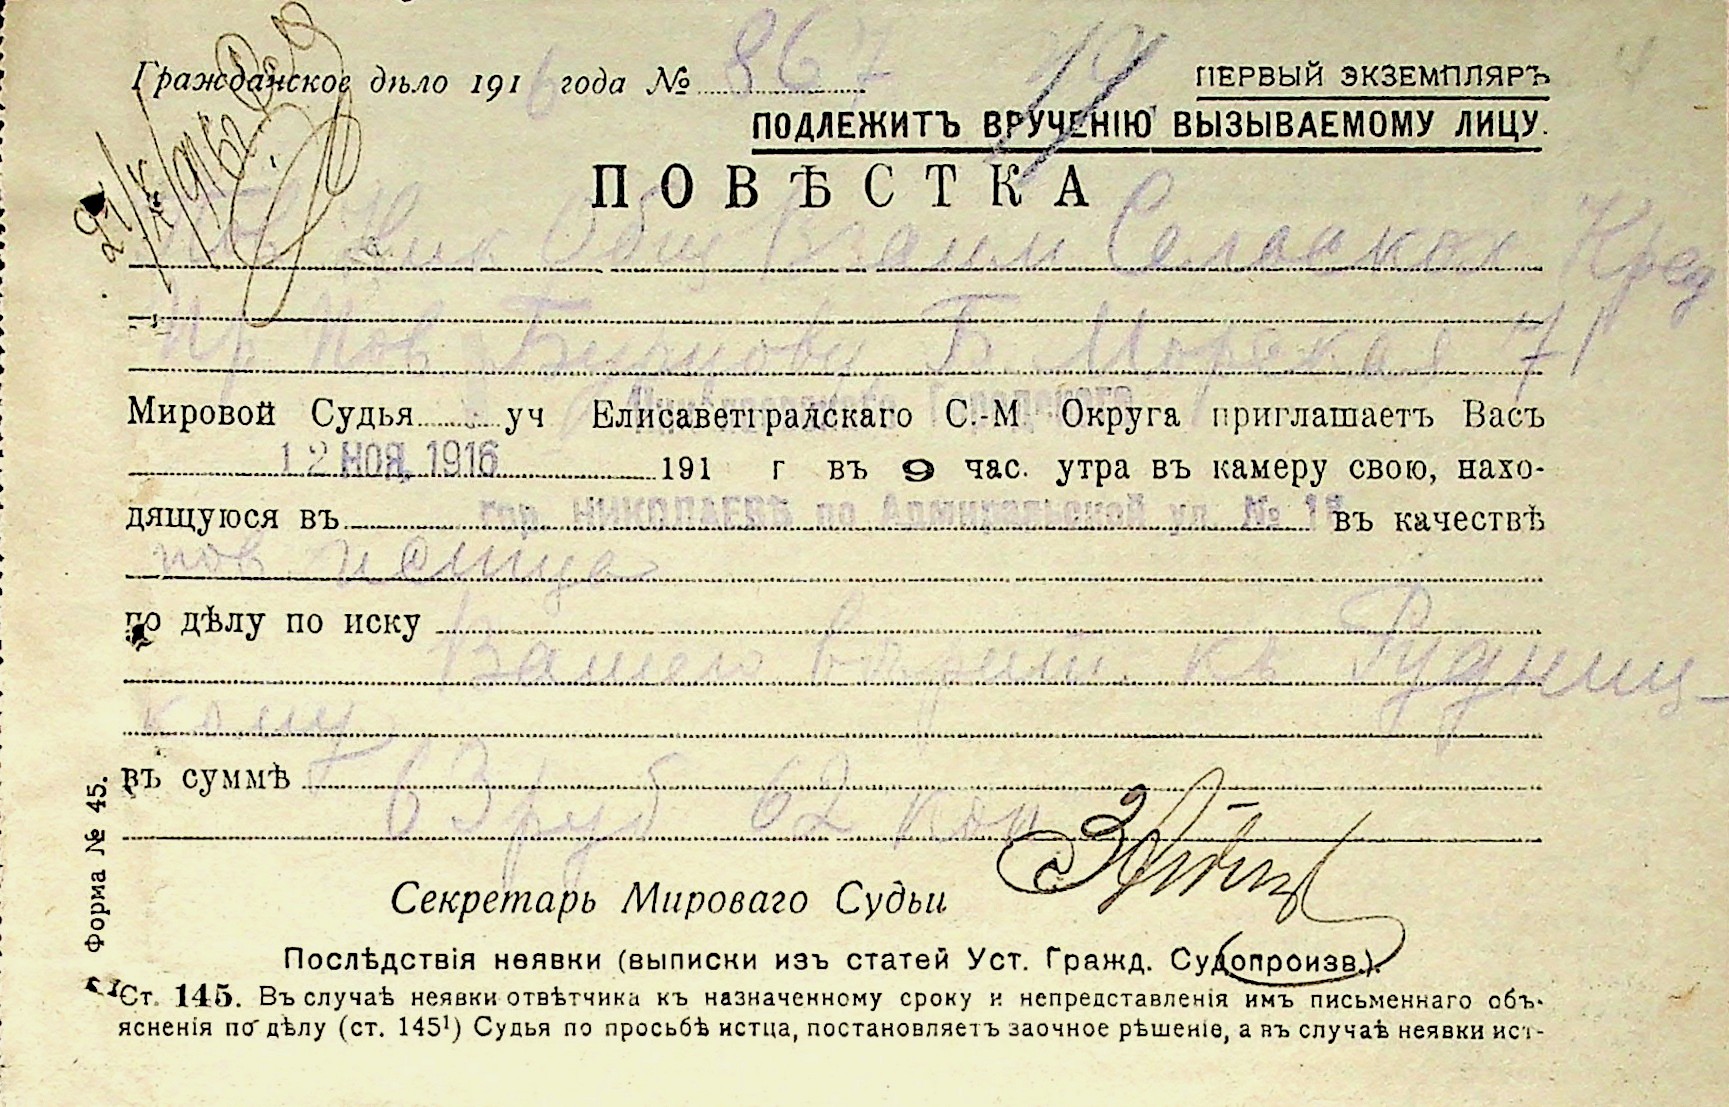 Гражданское дѣло 1916 года № 867
ПЕРВЫЙ ЭКЗЕМПЛЯРЪ
ПОДЛЕЖИТЪ ВРУЧЕНІЮ ВЫЗЫВАЕМОМУ ЛИЦУ.
27/X 1916
ПОВѢСТКА
Ник Общ Взаим Сельскох Кред
Пр. Пов Бурцову Б. Морская 71
Мировой Судья уч Елисаветградскаго С.-М Округа приглашаетъ Васъ
12 НОЯ. 1916 191 г въ 9 час. утра въ камеру свою, нахо-
дящуюся въ гор. НИКОЛАЕВѢ по Адмиральской ул. № въ качествѣ
пов истца
по дѣлу по иску
Вашего вѣрит. къ Рудниц-
кому
въ суммѣ
63 руб 62 коп
Секретарь Мироваго Судьи
Форма № 45.
Послѣдствія неявки (выписки изъ статей Уст. Гражд. Судопроизв.).
Ст. 145. Въ случаѣ неявки отвѣтчика къ назначенному сроку и непредставленія имъ письменнаго объ-
ясненія по дѣлу (ст. 145¹) Судья по просьбѣ истца, постановляетъ заочное рѣшеніе, а въ случаѣ неявки ист-